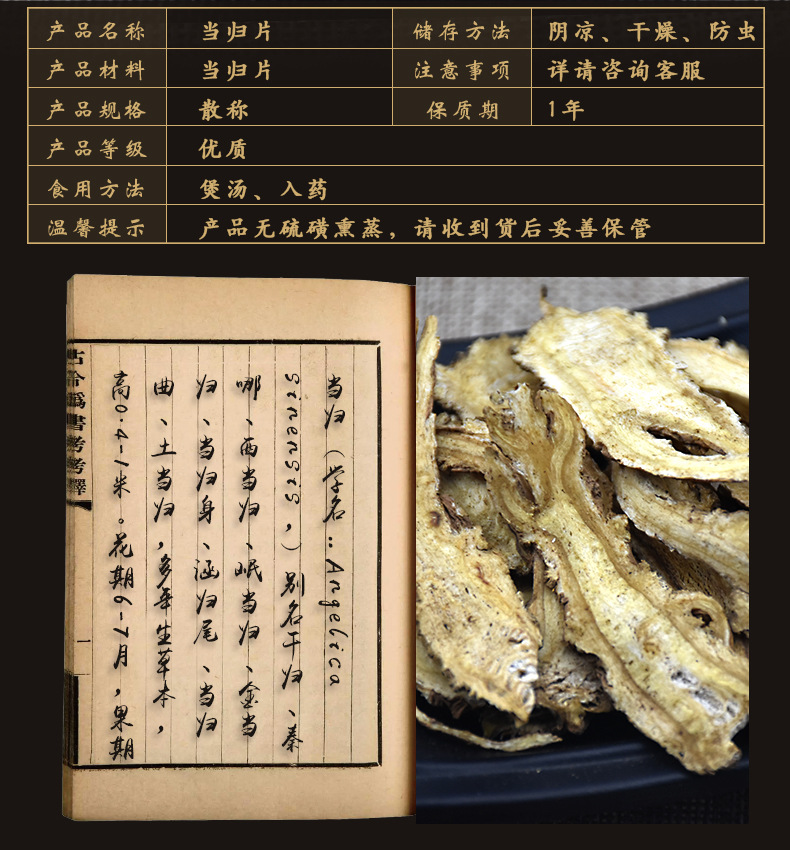 产品名称 当归片 储存方法 阴凉、干燥、防虫
产品材料 当归片 注意事项 详请咨询客服
产品规格 散称 保质期 1年
产品等级 优质
食用方法 煲汤、入药
温馨提示 产品无硫磺熏蒸，请收到货后妥善保管
当归（学名：Angelica
sinensis，）别名干归、秦
哪、西当归、岷当归、金当
归、当归身、涵归尾、当归
曲、土当归，多年生草本，
高0.4-1米。花期6-7月，果期
一